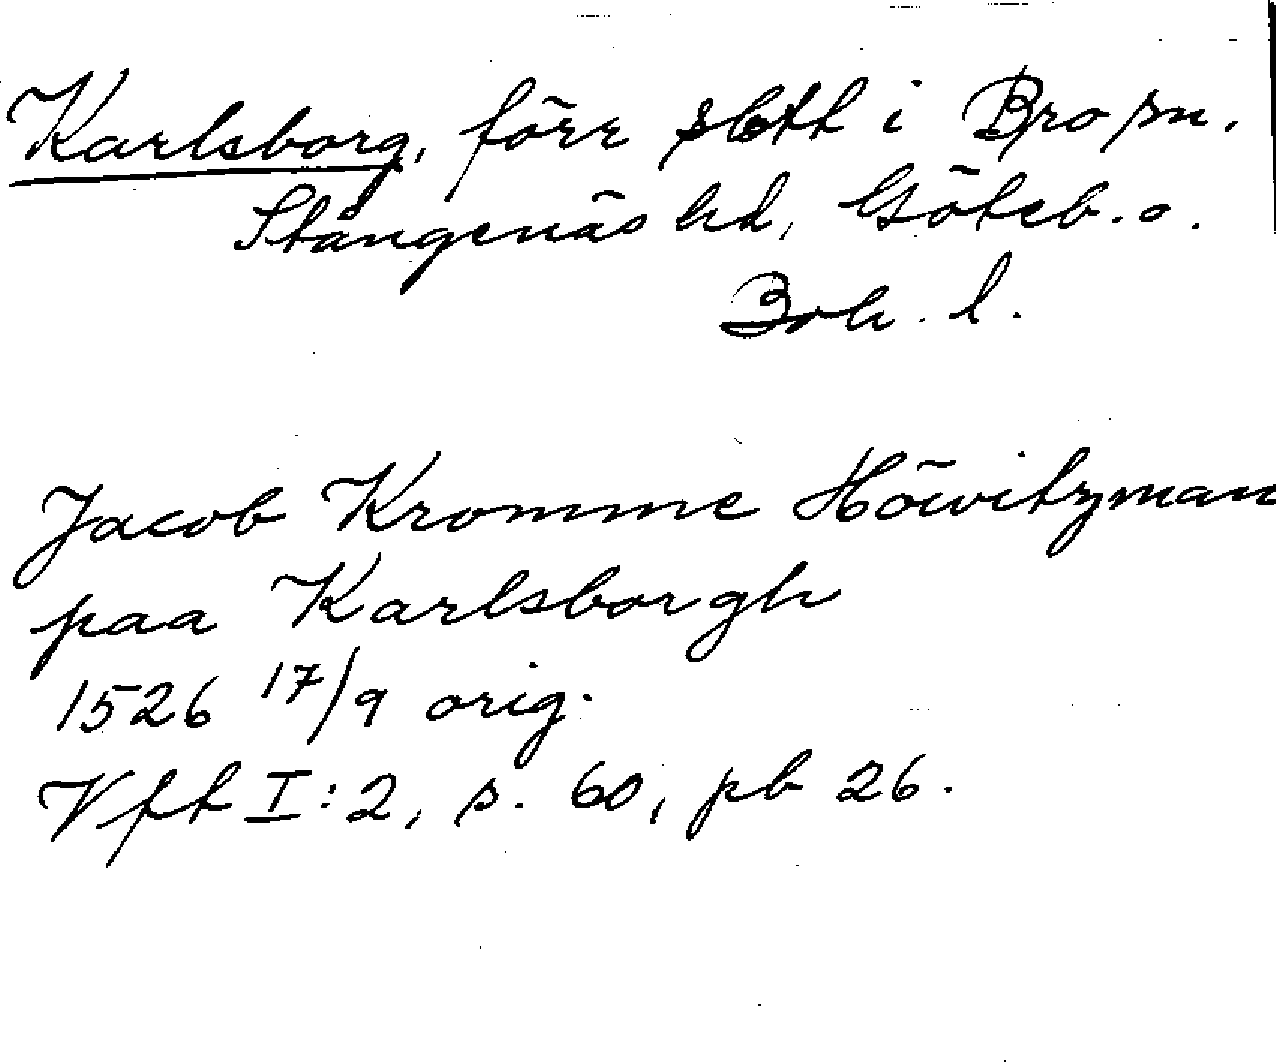 Karlsborg, förr slott i Bro sn.
Stångenäs hd, Göteb. o.
Boh. l.
Jacob Kromme Höwitzman
paa Karlsborgh
1526 17/9 orig.
Vfft I:2, s. 60, pb 26.